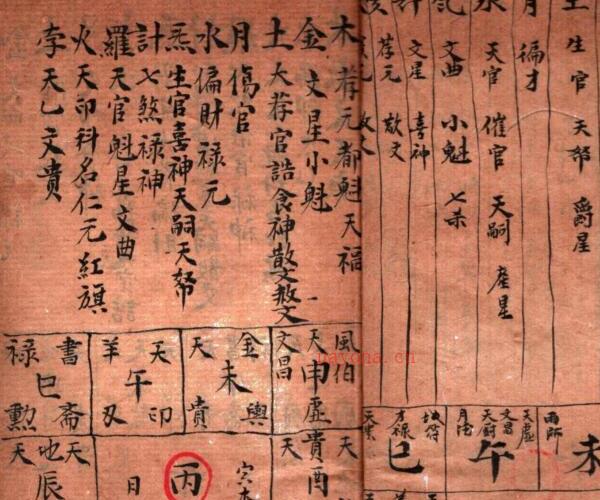 土 生官 天帑 爵星
月 偏才
水 天官 催官 天嗣 产星
文曲 小魁 七杀
計 文星 喜神
荐元 散文
木 荐元 都魁 天福
金 文星 小魁
土 大荐官 誥 食神 散文 散文
月 傷官
水 偏財 禄元
炁 生官 喜神 天嗣 天帑
計 七煞 禄神
羅 天官 魁星 文曲
火 天印 科名 仁元 紅旗
孛 天乙 文貴
雨师 天虚 未
文昌 天厨 月德 午
才禄 巳
風伯 天 申 虚 文昌
金輿 未 天貴
天印 午 羊刃
書斋 巳 禄勲
天 貴 酉 天
丙
日
天 地 辰 天
navoha.cn